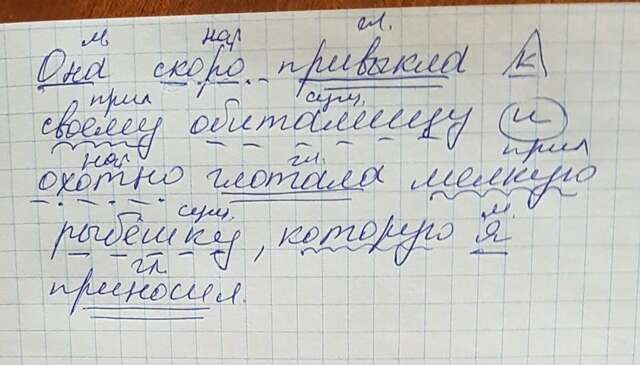 м нар гл.
Она скоро привыкла к
прил сущ.
своему обиталищу и
нар гл. прил
охотно глотала мелкую
сущ. м.
рыбёшку, которую я
гл.
приносил.